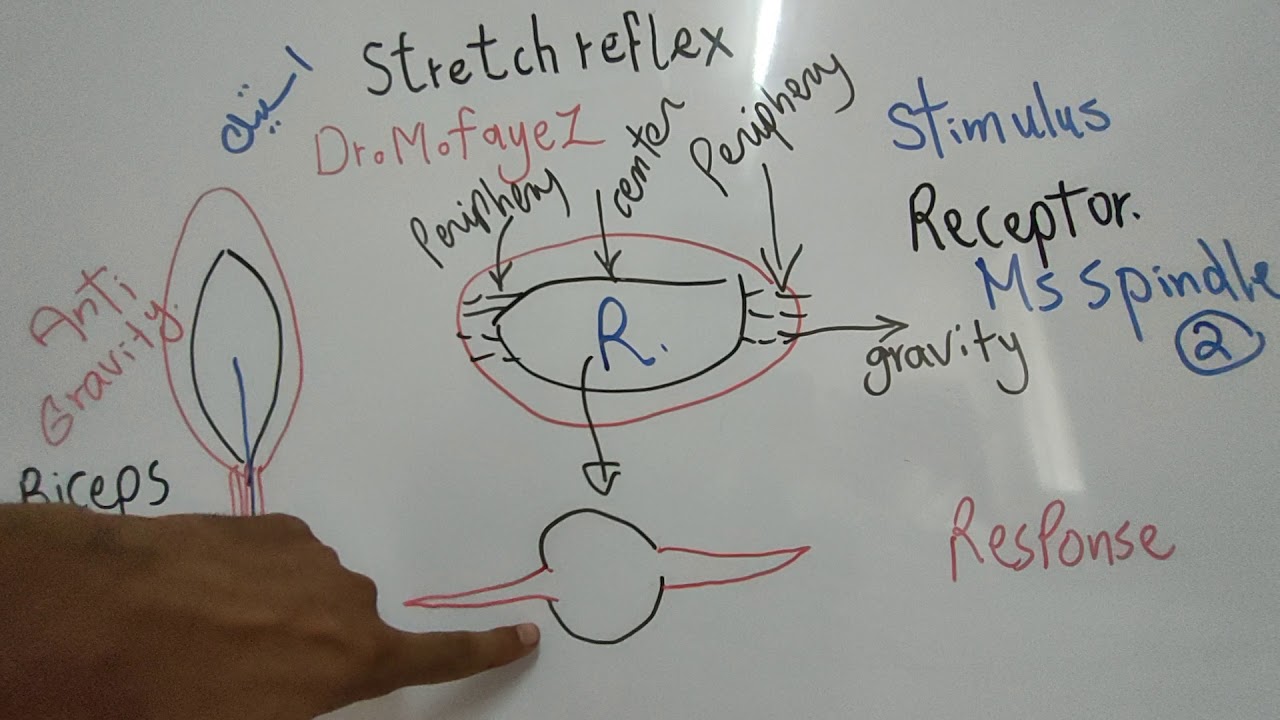 Stretch reflex
Dr.M.fayez
Periphery
center
Periphery
Stimulus
Receptor.
Ms spindle
2
R.
gravity
Anti
Gravity.
Biceps
Response